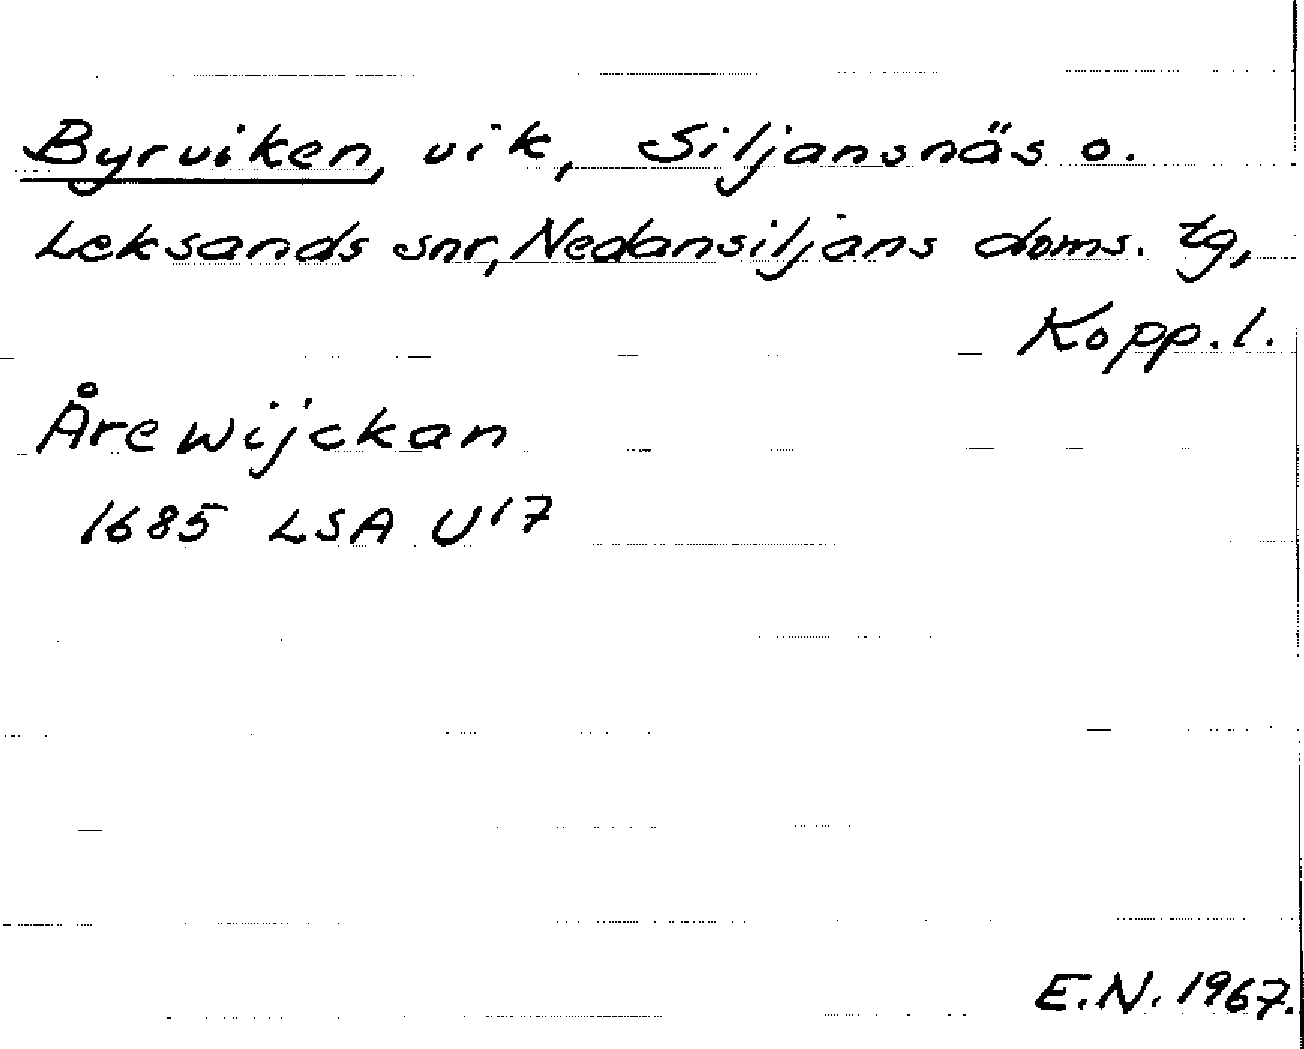 Byrviken, vik, Siljansnäs o.
Leksands snr, Nedansiljans doms. tg,
Kopp. l.
Årewijckan
1685 LSA U17
E.N. 1967.